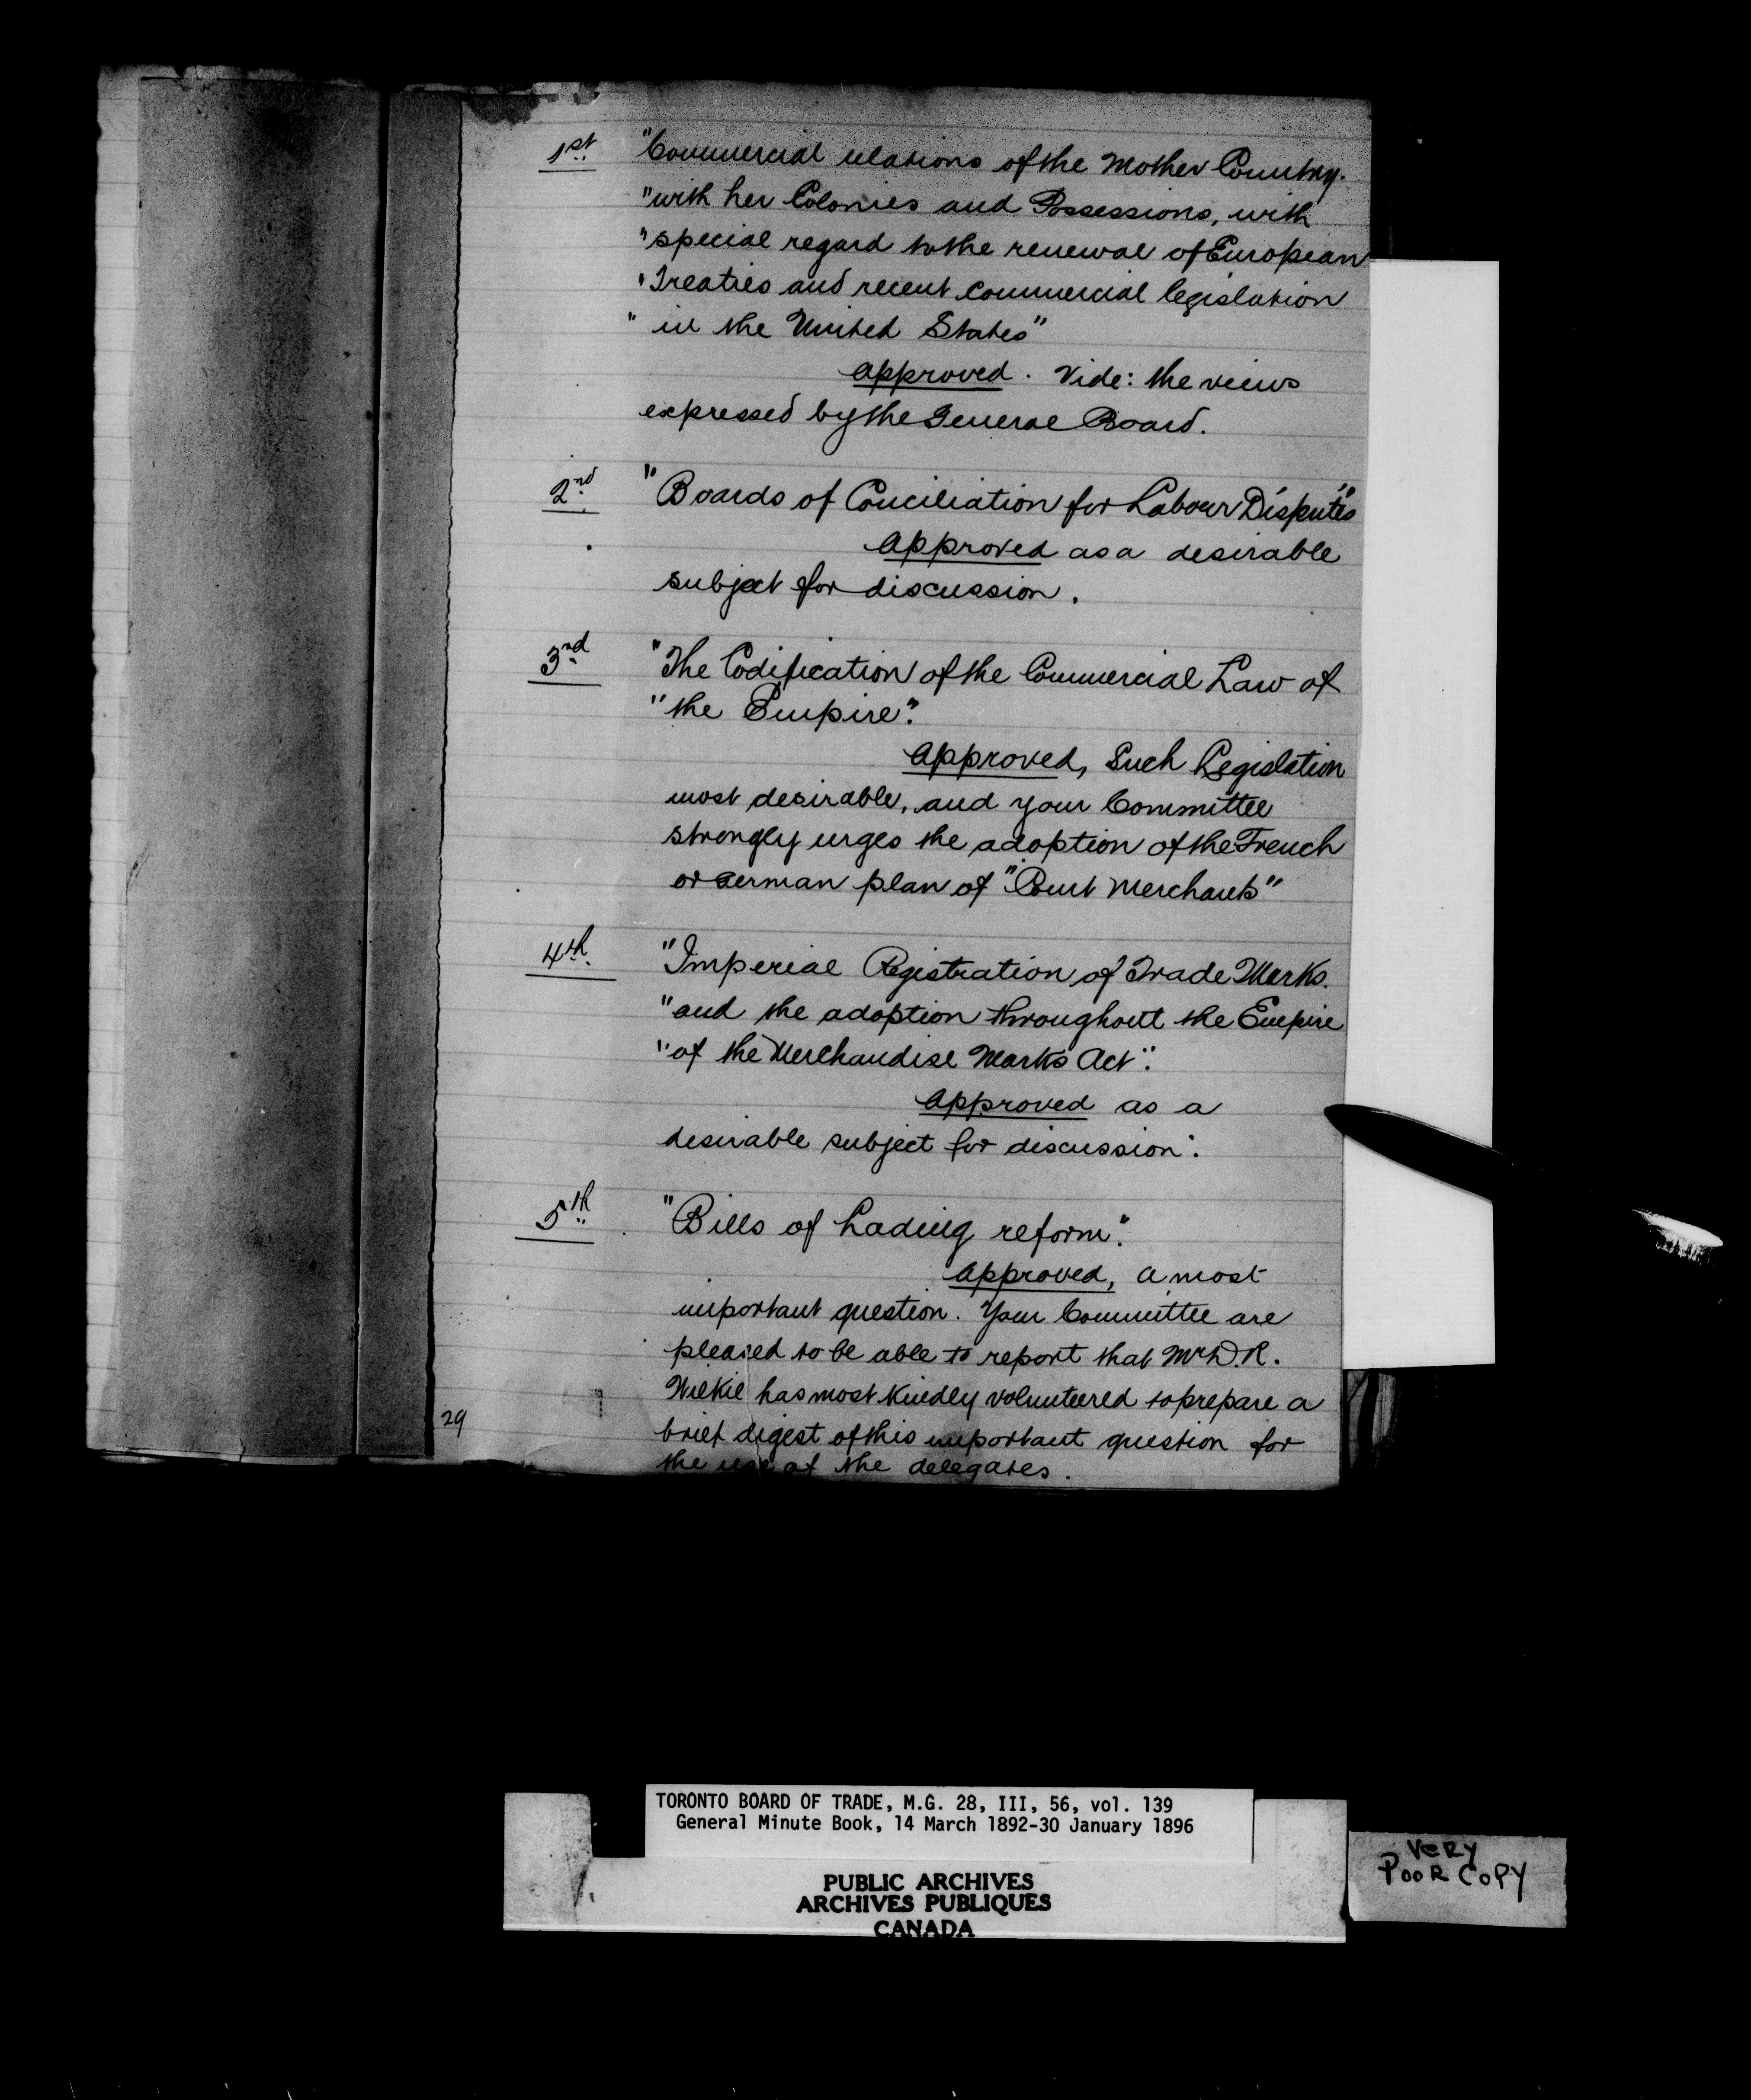 1st "Commercial relations of the Mother Country.
"with her Colonies and Possessions, with
"special regard to the renewal of European
"Treaties and recent Commercial legislation
" in the United States"
Approved. Vide: the views
expressed by the General Board.
2nd "Boards of Conciliation for Labour Disputes"
Approved as a desirable
subject for discussion.
3rd "The Codification of the Commercial Law of
"the Empire".
Approved, Such Legislation
most desirable, and your Committee
strongly urges the adoption of the French
or German plan of "Court Merchants"
4th "Imperial Registration of Trade Marks.
"and the adoption throughout the Empire
"of the Merchandise Marks Act".
Approved as a
desirable subject for discussion.
5th "Bills of Lading reform".
Approved, a most
important question. Your Committee are
pleased to be able to report that Mr D. R.
Wilkie has most kindly volunteered to prepare a
brief digest of this important question for
the use of the delegates.
29
TORONTO BOARD OF TRADE, M.G. 28, III, 56, vol. 139
General Minute Book, 14 March 1892-30 January 1896
PUBLIC ARCHIVES
ARCHIVES PUBLIQUES
CANADA
VERY
POOR COPY